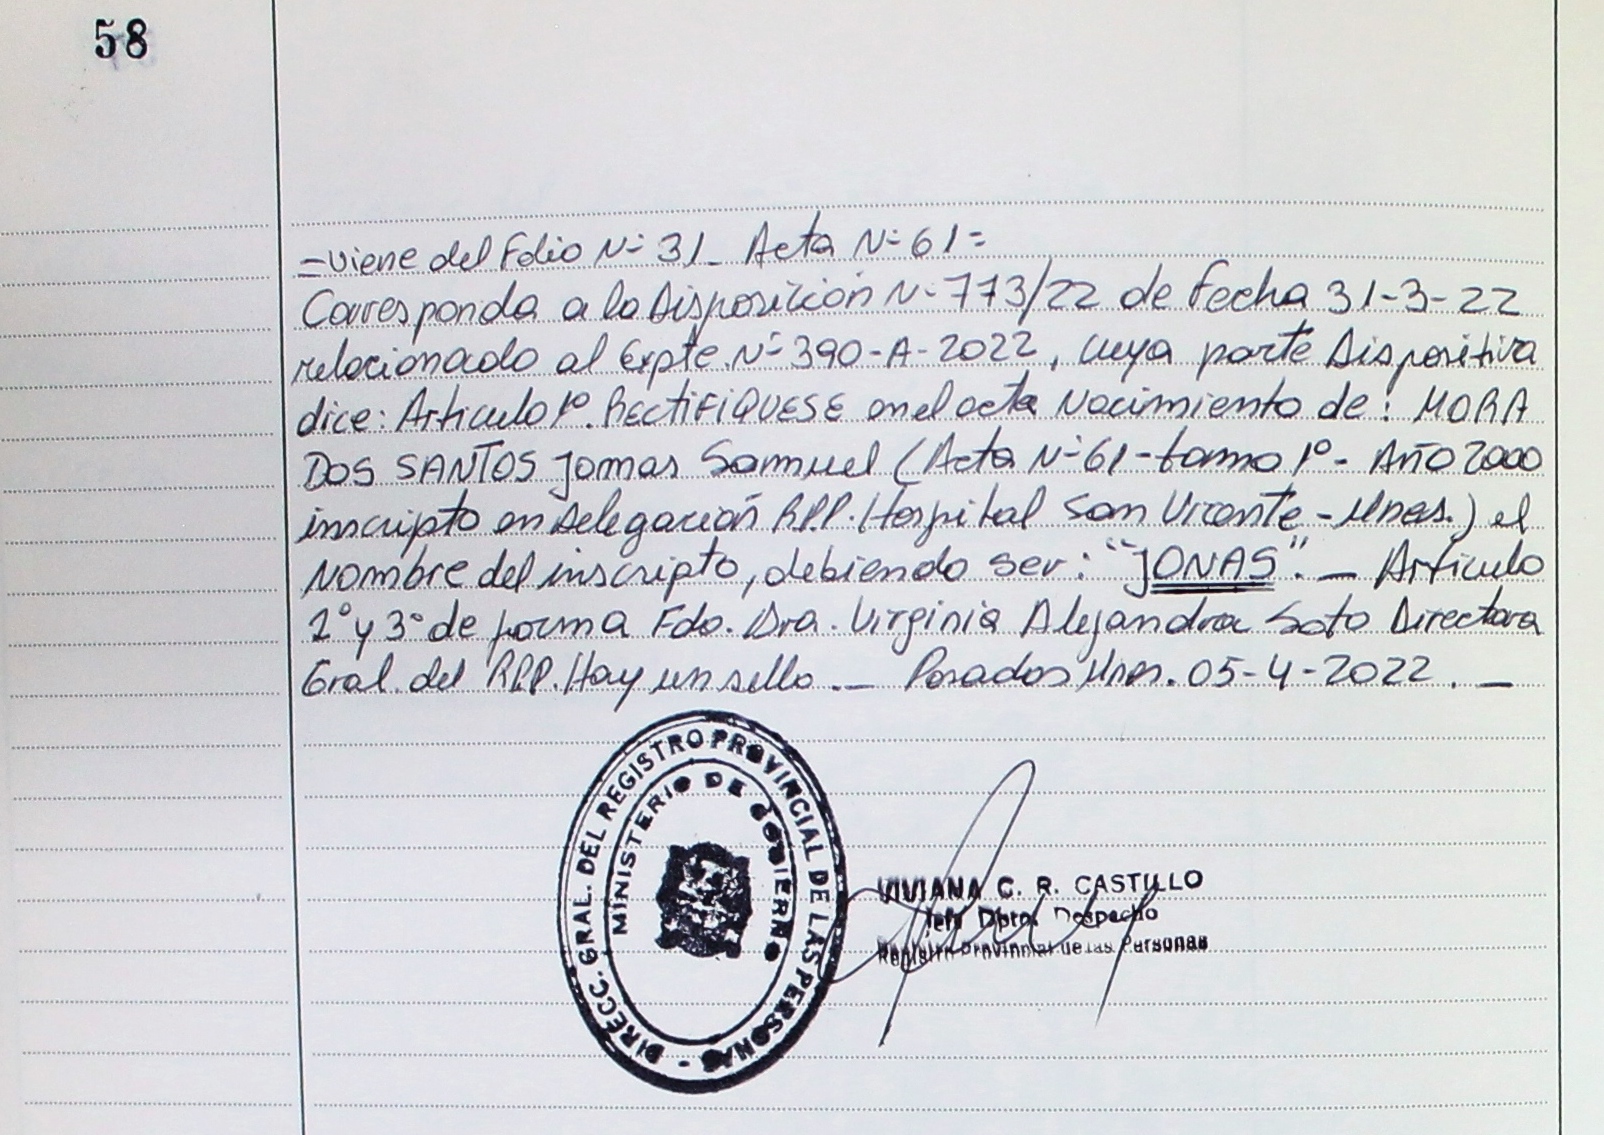 58
=Viene del Folio N° 31_ Acta N° 61=
Corresponda a la Disposición N° 773/22 de fecha 31-3-22
relacionado al Expte. N° 390-A-2022, cuya parte Dispositiva
dice: Articulo 1º. RECTIFIQUESE en el acta Nacimiento de: MORA
DOS SANTOS Jomas Samuel (Acta N° 61-tomo 1º- Año 2000
inscripto en Delegación R.P.P. Hospital San Vicente - Mnes.) el
Nombre del inscripto, debiendo ser: "JONAS". _ Articulo
2° y 3° de forma Fdo. Dra. Virginia Alejandra Soto Directora
Gral. del RPP. Hay un sello ._ Posadas Mnes. 05-4-2022. _
DIRECC. GRAL. DEL REGISTRO PROVINCIAL DE LAS PERSONAS -
MINISTERIO DE GOBIERNO
VIVIANA C. R. CASTILLO
Jefe Dpto. Despacho
Registro Provincial de las Personas